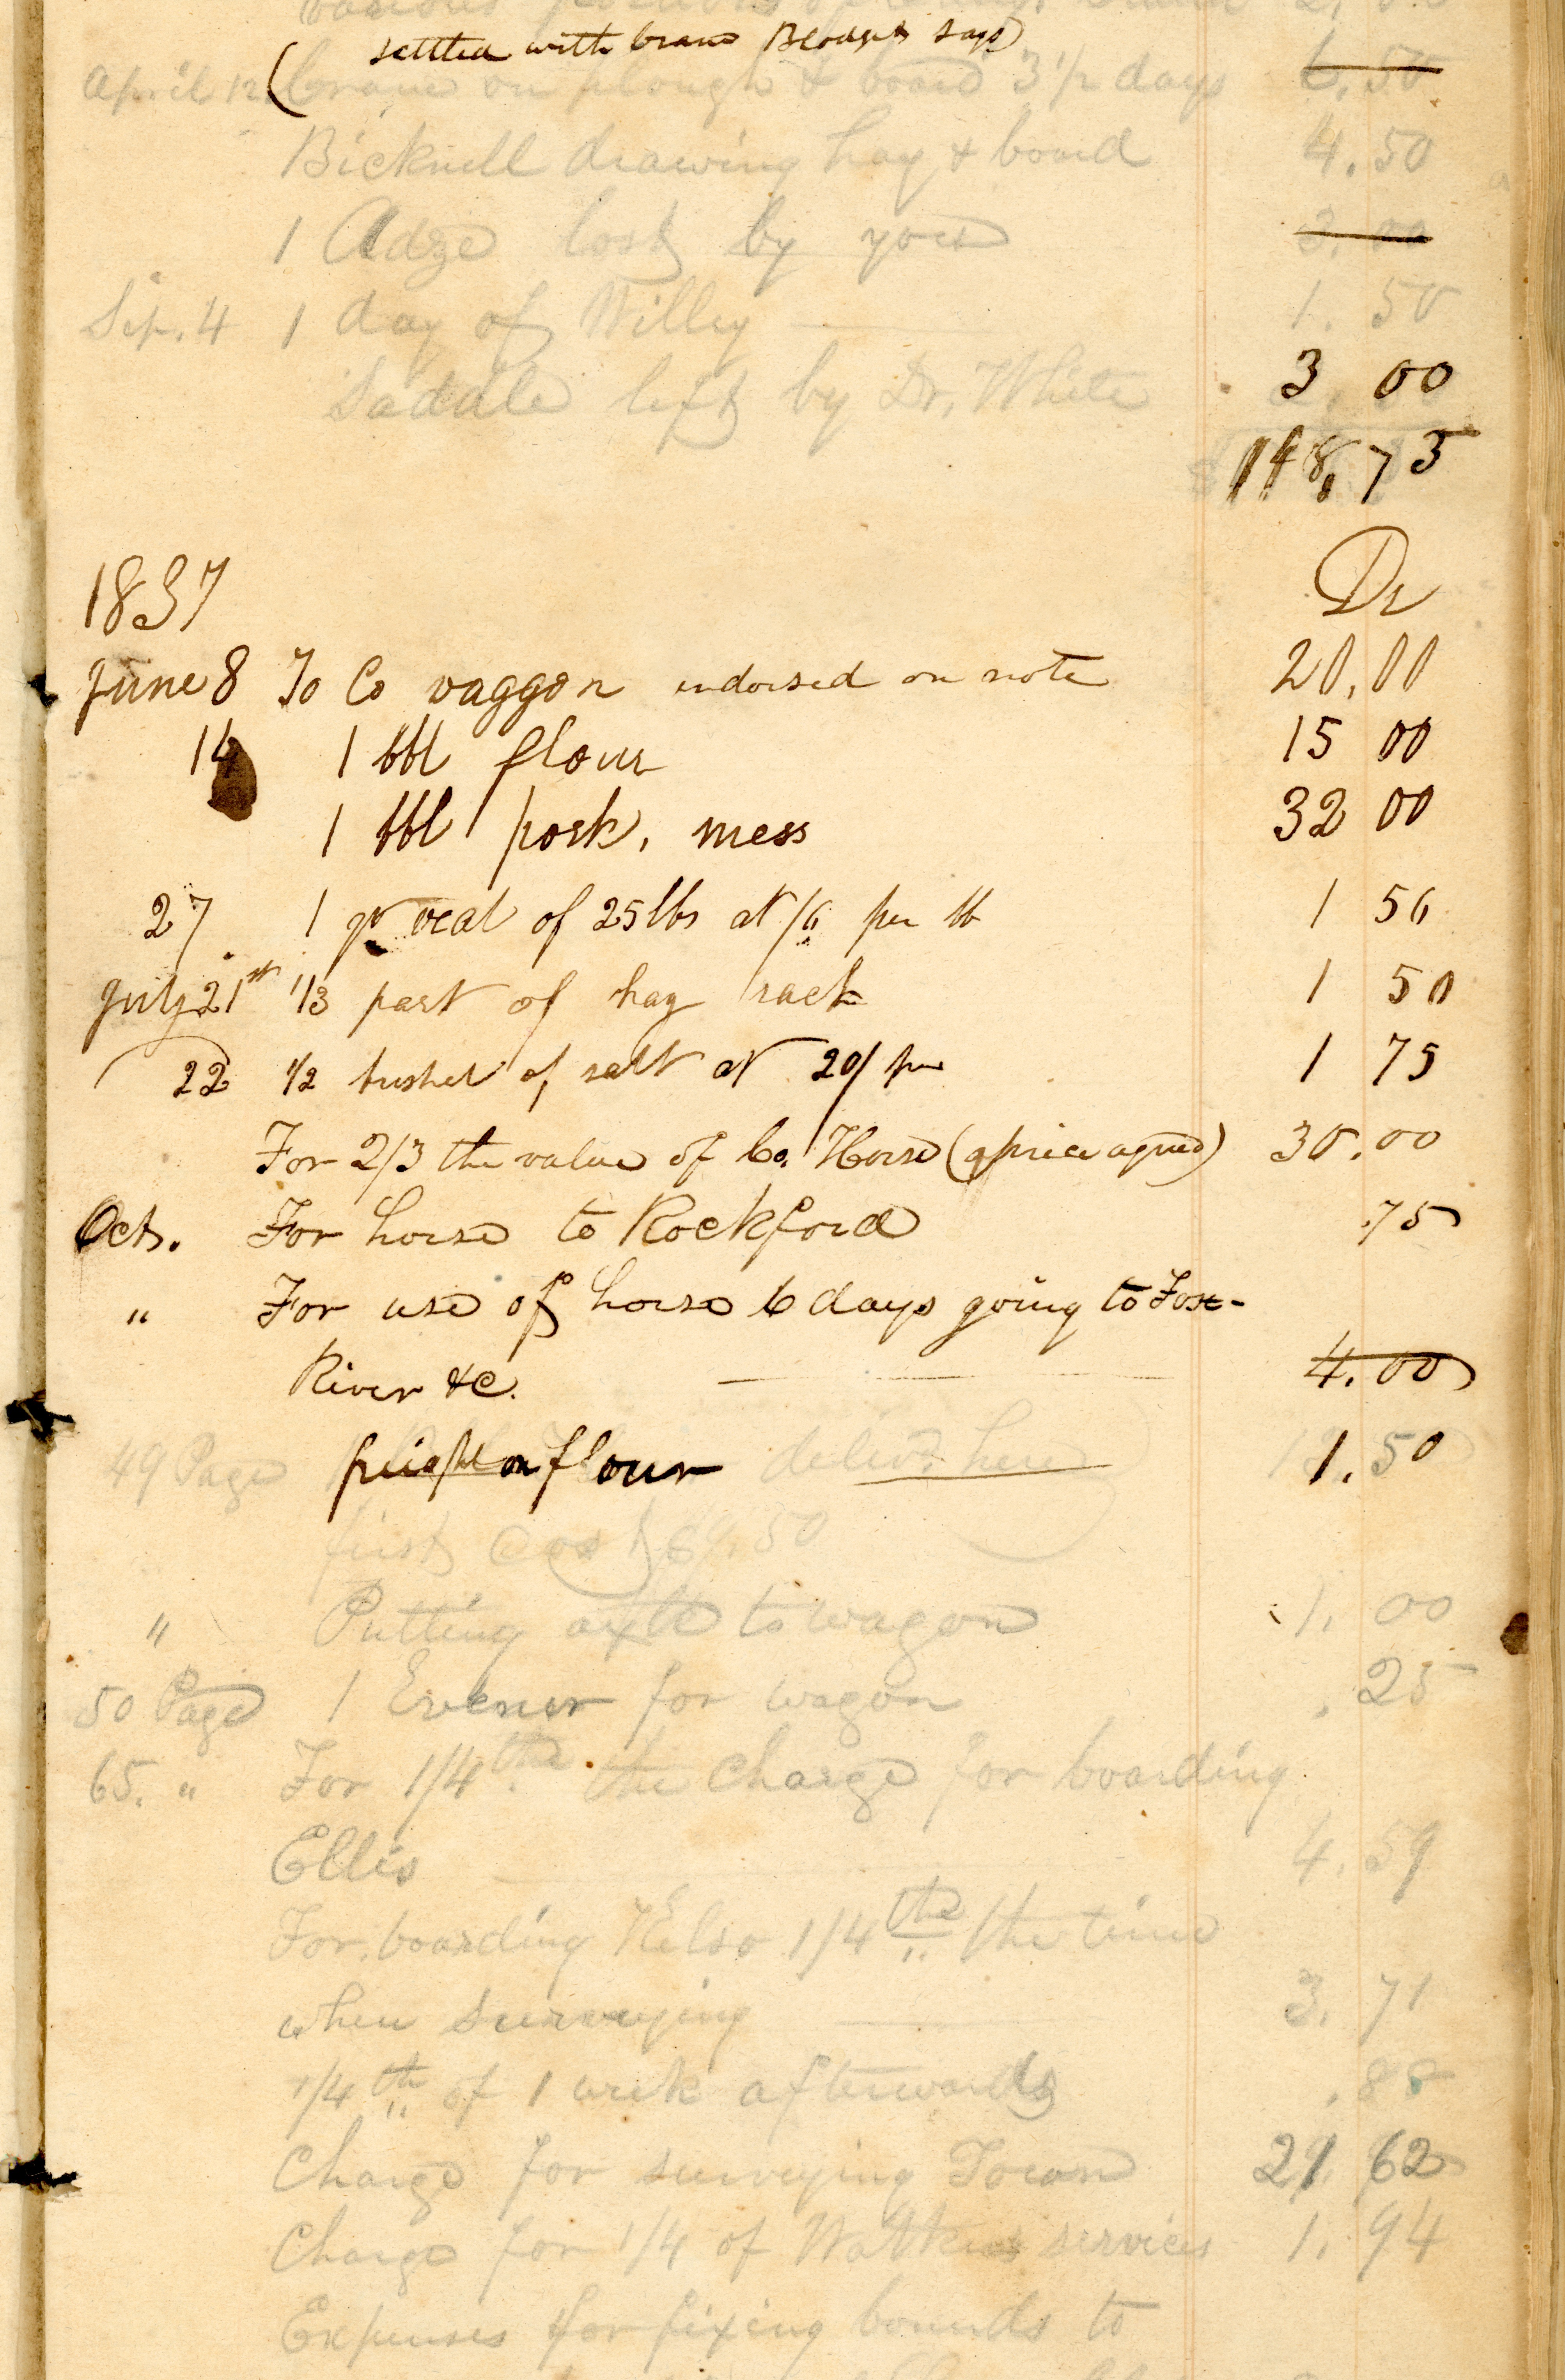 various
settled with Crane Blodgett says)
April 12. (Crane on plough & board 3 1/2 days 6.50
Bicknell drawing hay & board 4.50
1 Adze lost by you 3.00
Sep. 4 1 day of Willey 1.50
Sadale left by Dr. White 3.00
148,75
1837 Dr
June 8 To Co waggon endorsed on note 20,00
14 1 bbl flour 15 00
1 bbl pork, mess 32 00
27 1 qr veal of 25 lbs at /6 per lb 1 56
July 21st 1/3 part of hay rack 1 50
22 1/2 bushel of salt at 20/ per 1 75
For 2/3 the value of Co. Horse (price agreed) 30.00
Oct. For horse to Rockford .75
" For use of horse 6 days going to Fox-
River &c. 4.00
49 Page freight on flour delivd. here 1.50
first cost $9.50
" Putting axle to wagon 1.00
50 Page 1 Evener for wagon .25
65. " For 1/4th the charge for boarding
Ellis 4.59
For boarding Kelso 1/4th the time
when surveying 3.71
1/4th of 1 week afterwards .88
Charge for surveying Town 21 62
Charge for 1/4 of Watkins services 1.94
Expenses for fixing bounds to